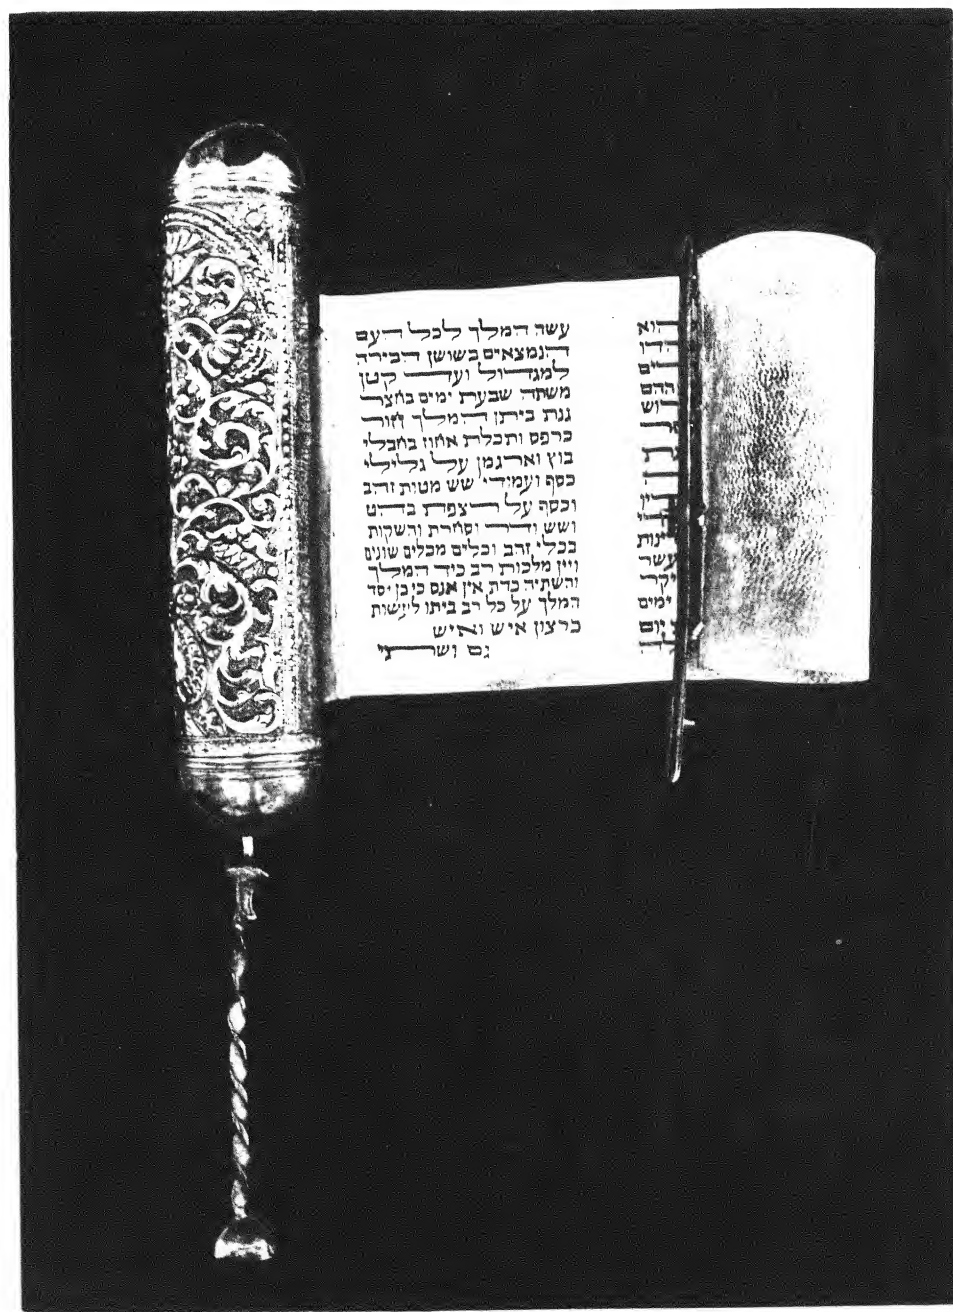 הוא
הדו
ים
ההם
רוש
ינות
עשר
יקר
ימים
יום
עשה המלך לכל העם
הנמצאים בשושן הבירה
למגדול ועד קטן
משתה שבעת ימים בחצר
גנת ביתן המלך חור
כרפס ותכלת אחוז בחבלי
בוץ וארגמן על גלילי
כסף ועמודי שש מטות זהב
וכסף על רצפת בהט
ושש ודר וסחרת והשקות
בכלי זהב וכלים מכלים שונים
ויין מלכות רב כיד המלך
והשתיה כדת אין אנס כי כן יסד
המלך על כל רב ביתו לעשות
כרצון איש ואיש
גם ושתי